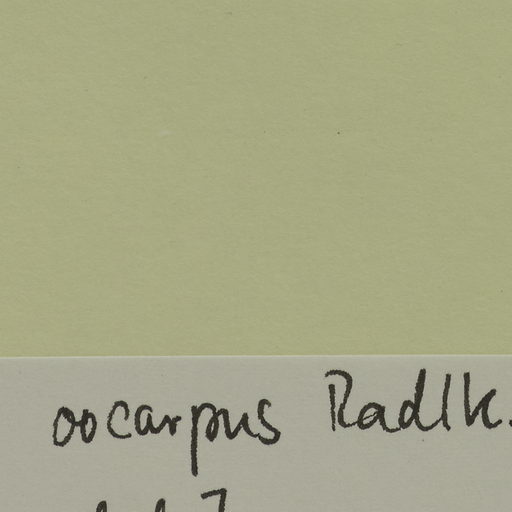 oocarpus Radlk.